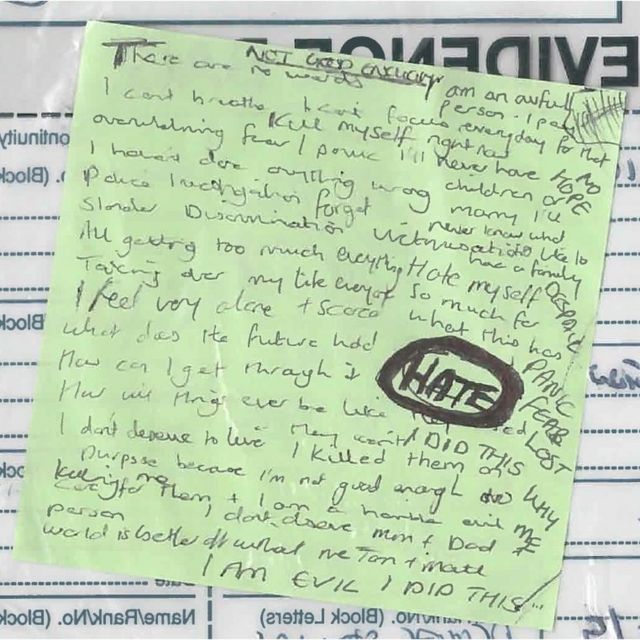 There are NOT GOOD ENOUGH
no words
I am an awful person. I pay everyday for that
I can't breathe I can't focus
Kill myself right now
overwhelming fear / panic I'll never have NO HOPE
I haven't done anything wrong children or marry I'll
Police Investigation forget never know what
Slander Discrimination Victimisation like to had a family
All getting too much everything Hate myself DESPAIR
Taking over my life everyday so much for
I feel very alone + scared what this has
What does the future hold PANIC
How can I get through it HATE FEAR
How will things ever be like LOST
I don't deserve to live I DID THIS
I killed them on WHY
purpose because I'm not good enough ME
to care for them + I am a horrible evil
killing me
person I don't deserve mum + Dad
world is better off without me
I AM EVIL I DID THIS
EVIDENCE
Continuity
No. (Block
Block
Date
Name/Rank/No. (Block Letters)